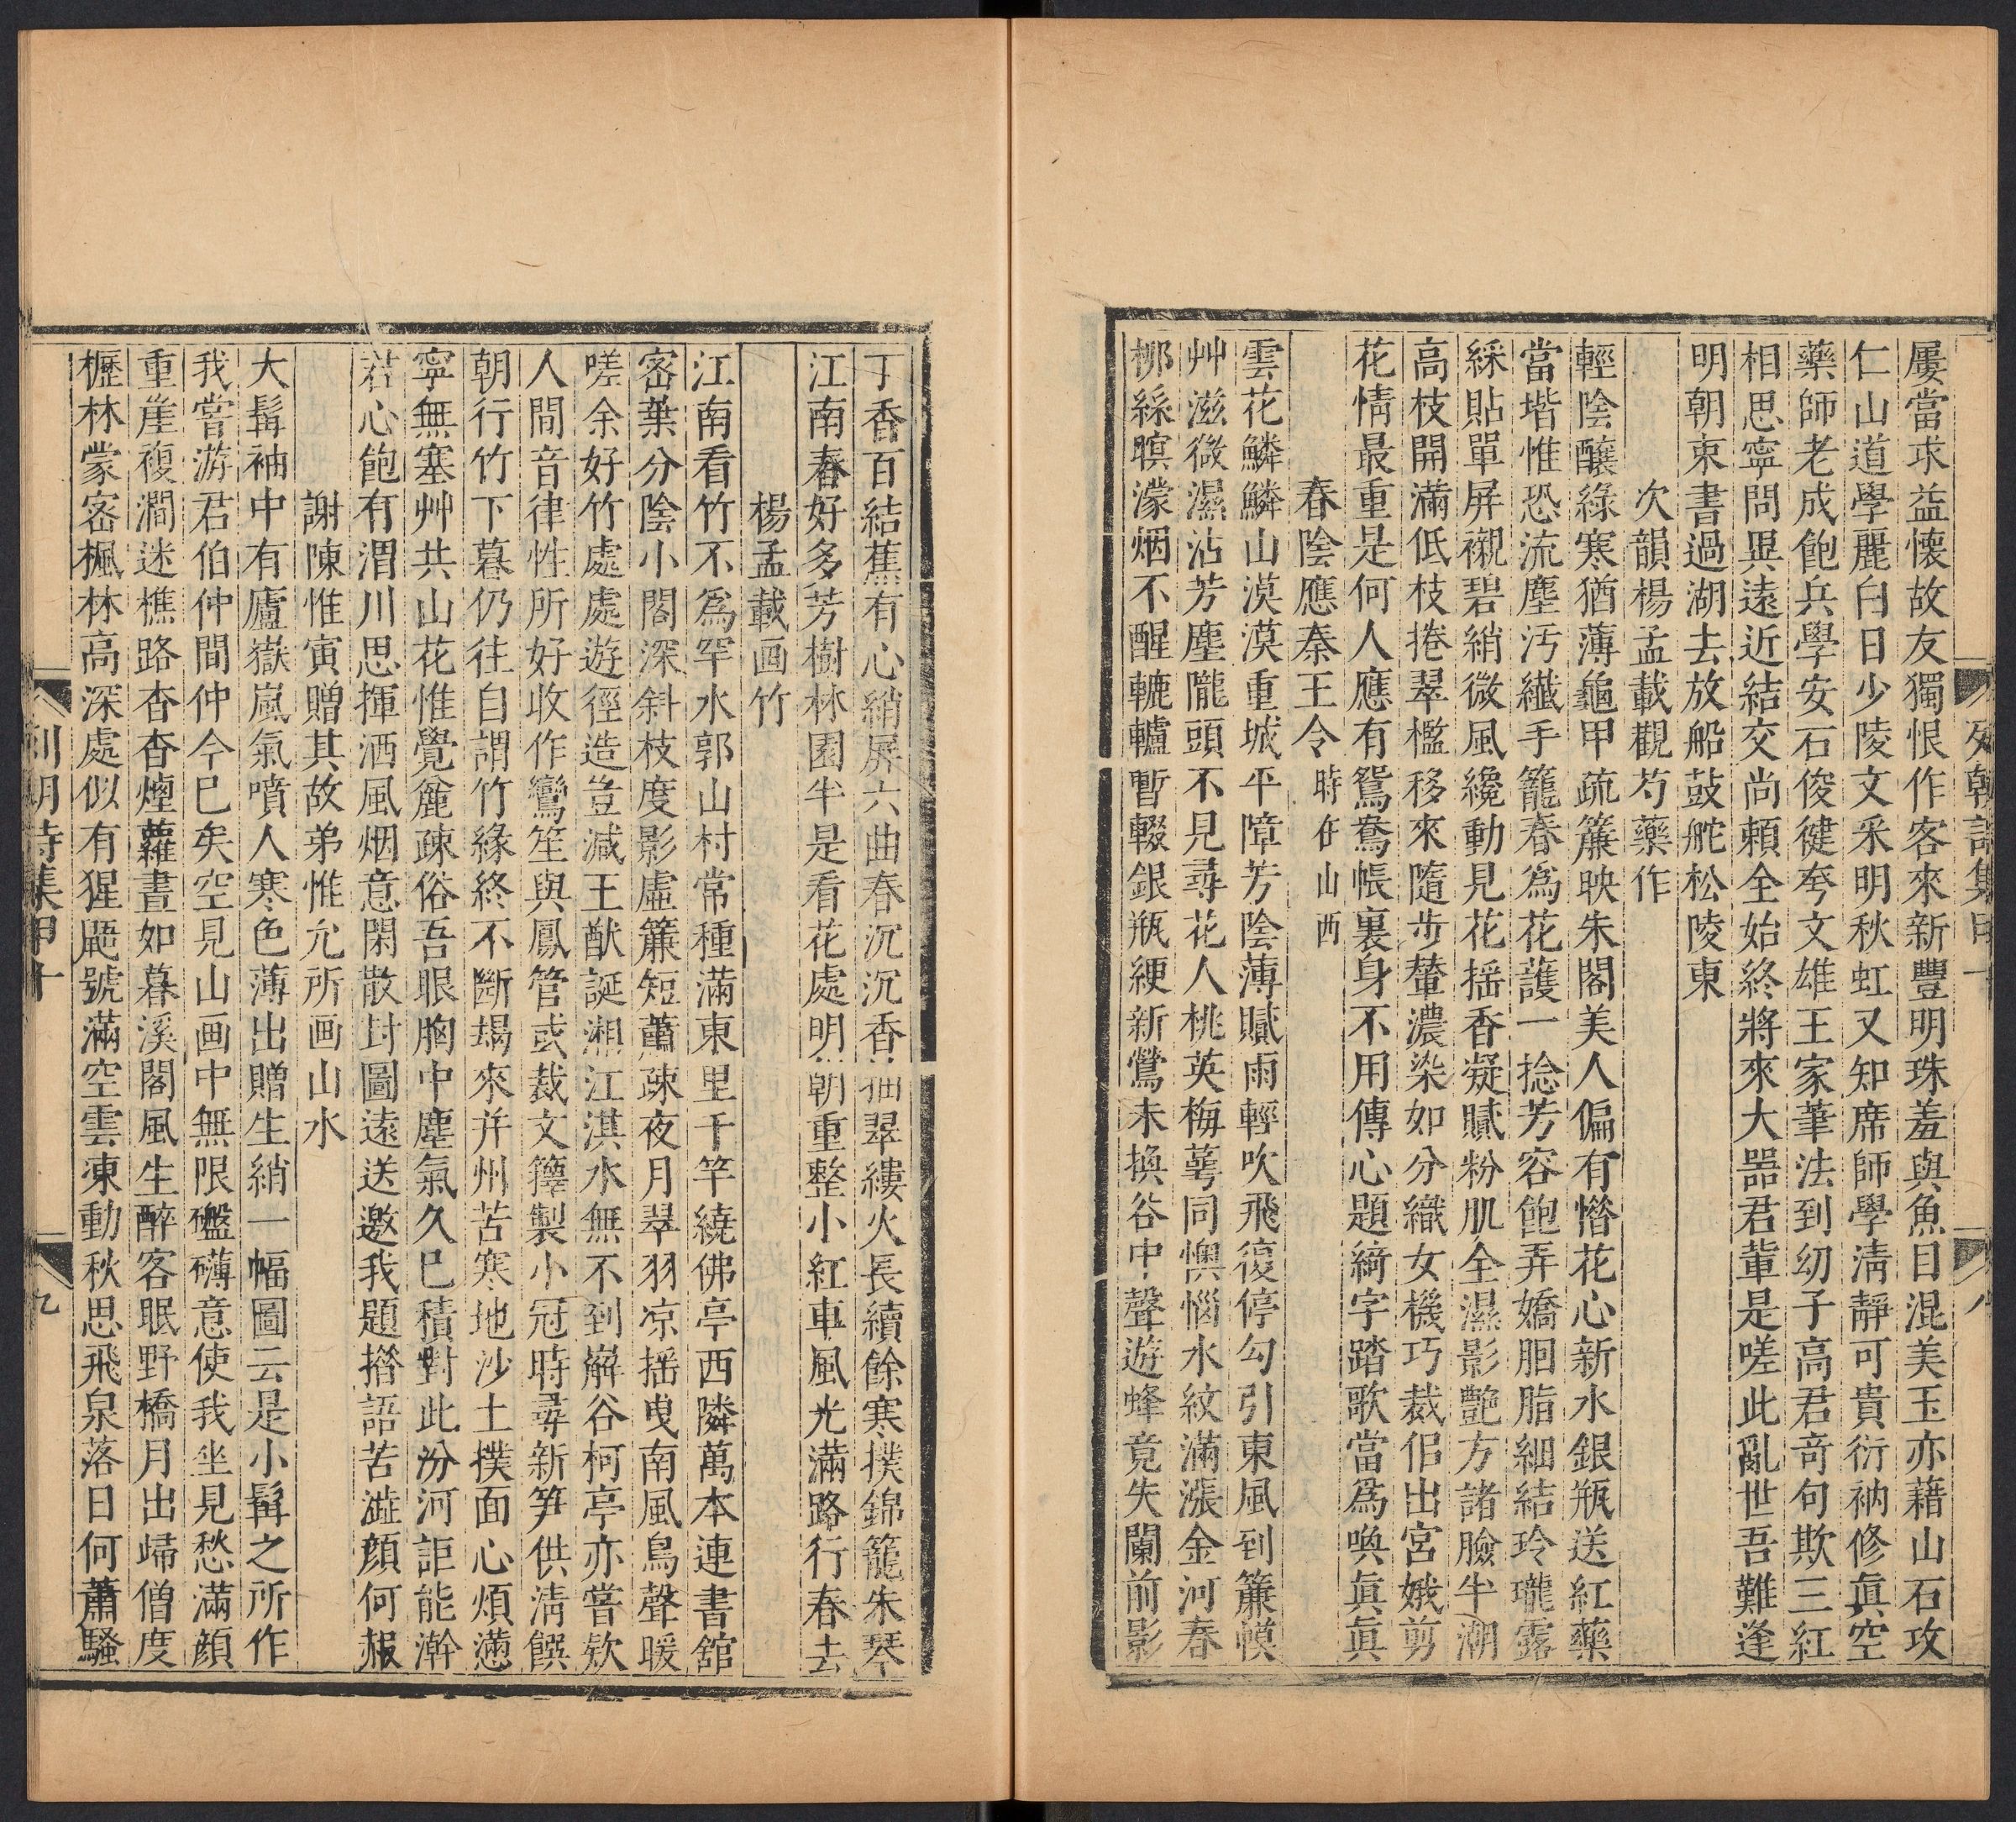 屢當求益懷故友獨恨作客來新豐明珠羞與魚目混美玉亦藉山石攻
仁山道學麗白日少陵文采明秋虹又知席師學淸靜可貴衍衲修眞空
藥師老成飽兵學安石俊健夸文雄王家筆法到幼子高君竒句欺三紅
相思寧問異遠近結交尚頼全始終將來大噐君輩是嗟此亂世吾難逢
明朝柬書過湖去放船鼓舵松陵東
次韻楊孟載觀芍藥作
輕陰釀綠寒猶薄龜甲疏簾映朱閣美人偏有惜花心新水銀瓶送紅藥
當堦惟恐流塵汚纎手籠春爲花護一捻芳容飽弄嬌胭脂細結玲瓏露
綵貼單屏襯碧綃微風纔動見花揺香凝膩粉肌全濕影艷方諸臉半潮
高枝開滿低枝捲翠檻移來隨步輦濃染如分織女機巧裁佀出宮娥剪
花情最重是何人應有鴛鴦帳裏身不用傳心題綺字踏歌當爲喚眞眞
春陰應秦王令時在山西
雲花鱗鱗山漠漠重城平障芳陰薄膩雨輕吹飛復停勾引東風到簾幙
艸滋微濕沾芳塵隴頭不見尋花人桃英梅蕚同懊惱水紋滿漲金河春
栁絲暝濛烟不醒轆轤暫輟銀瓶綆新鶯未換谷中聲遊蜂竟失闌前影
列朝詩集甲十 八
丁香百結蕉有心綃屏六曲春沉沉香 翠縷火長續餘寒撲錦籠朱琴
江南春好多芳樹林園半是看花處明朝重整小紅車風光滿路行春去
楊孟載画竹
江南看竹不爲罕水郭山村常種滿東里千竿繞佛亭西隣萬本連書舘
宻葉分陰小閣深斜枝度影虛簾短蕭疎夜月翠羽凉揺曳南風鳥聲暖
嗟余好竹處處遊徑造豈減王猷誕湘江淇水無不到嶰谷柯亭亦嘗欵
人間音律性所好收作鸞笙與鳳管或裁文籜製小冠時尋新笋供淸饌
朝行竹下暮仍往自謂竹緣終不斷朅來并州苦寒地沙土撲面心煩懣
寧無塞艸共山花惟覺麄疎俗吾眼胸中塵氣久已積對此汾河詎能澣
若心飽有渭川思揮洒風烟意閑散封圖遠送邀我題搚語苦澁顔何赧
謝陳惟寅贈其故弟惟允所画山水
大髯袖中有廬嶽嵐氣噴人寒色薄出贈生綃一幅圖云是小髯之所作
我嘗游君伯仲間仲今已矣空見山画中無限礷礴意使我坐見愁滿顔
重崖複澗迷樵路杳杳煙蘿晝如暮溪閣風生醉客眠野橋月出歸僧度
櫪林蒙宻楓林高深處似有猩鼯號滿空雲凍動秋思飛泉落日何蕭騷
列朝詩集甲十 九